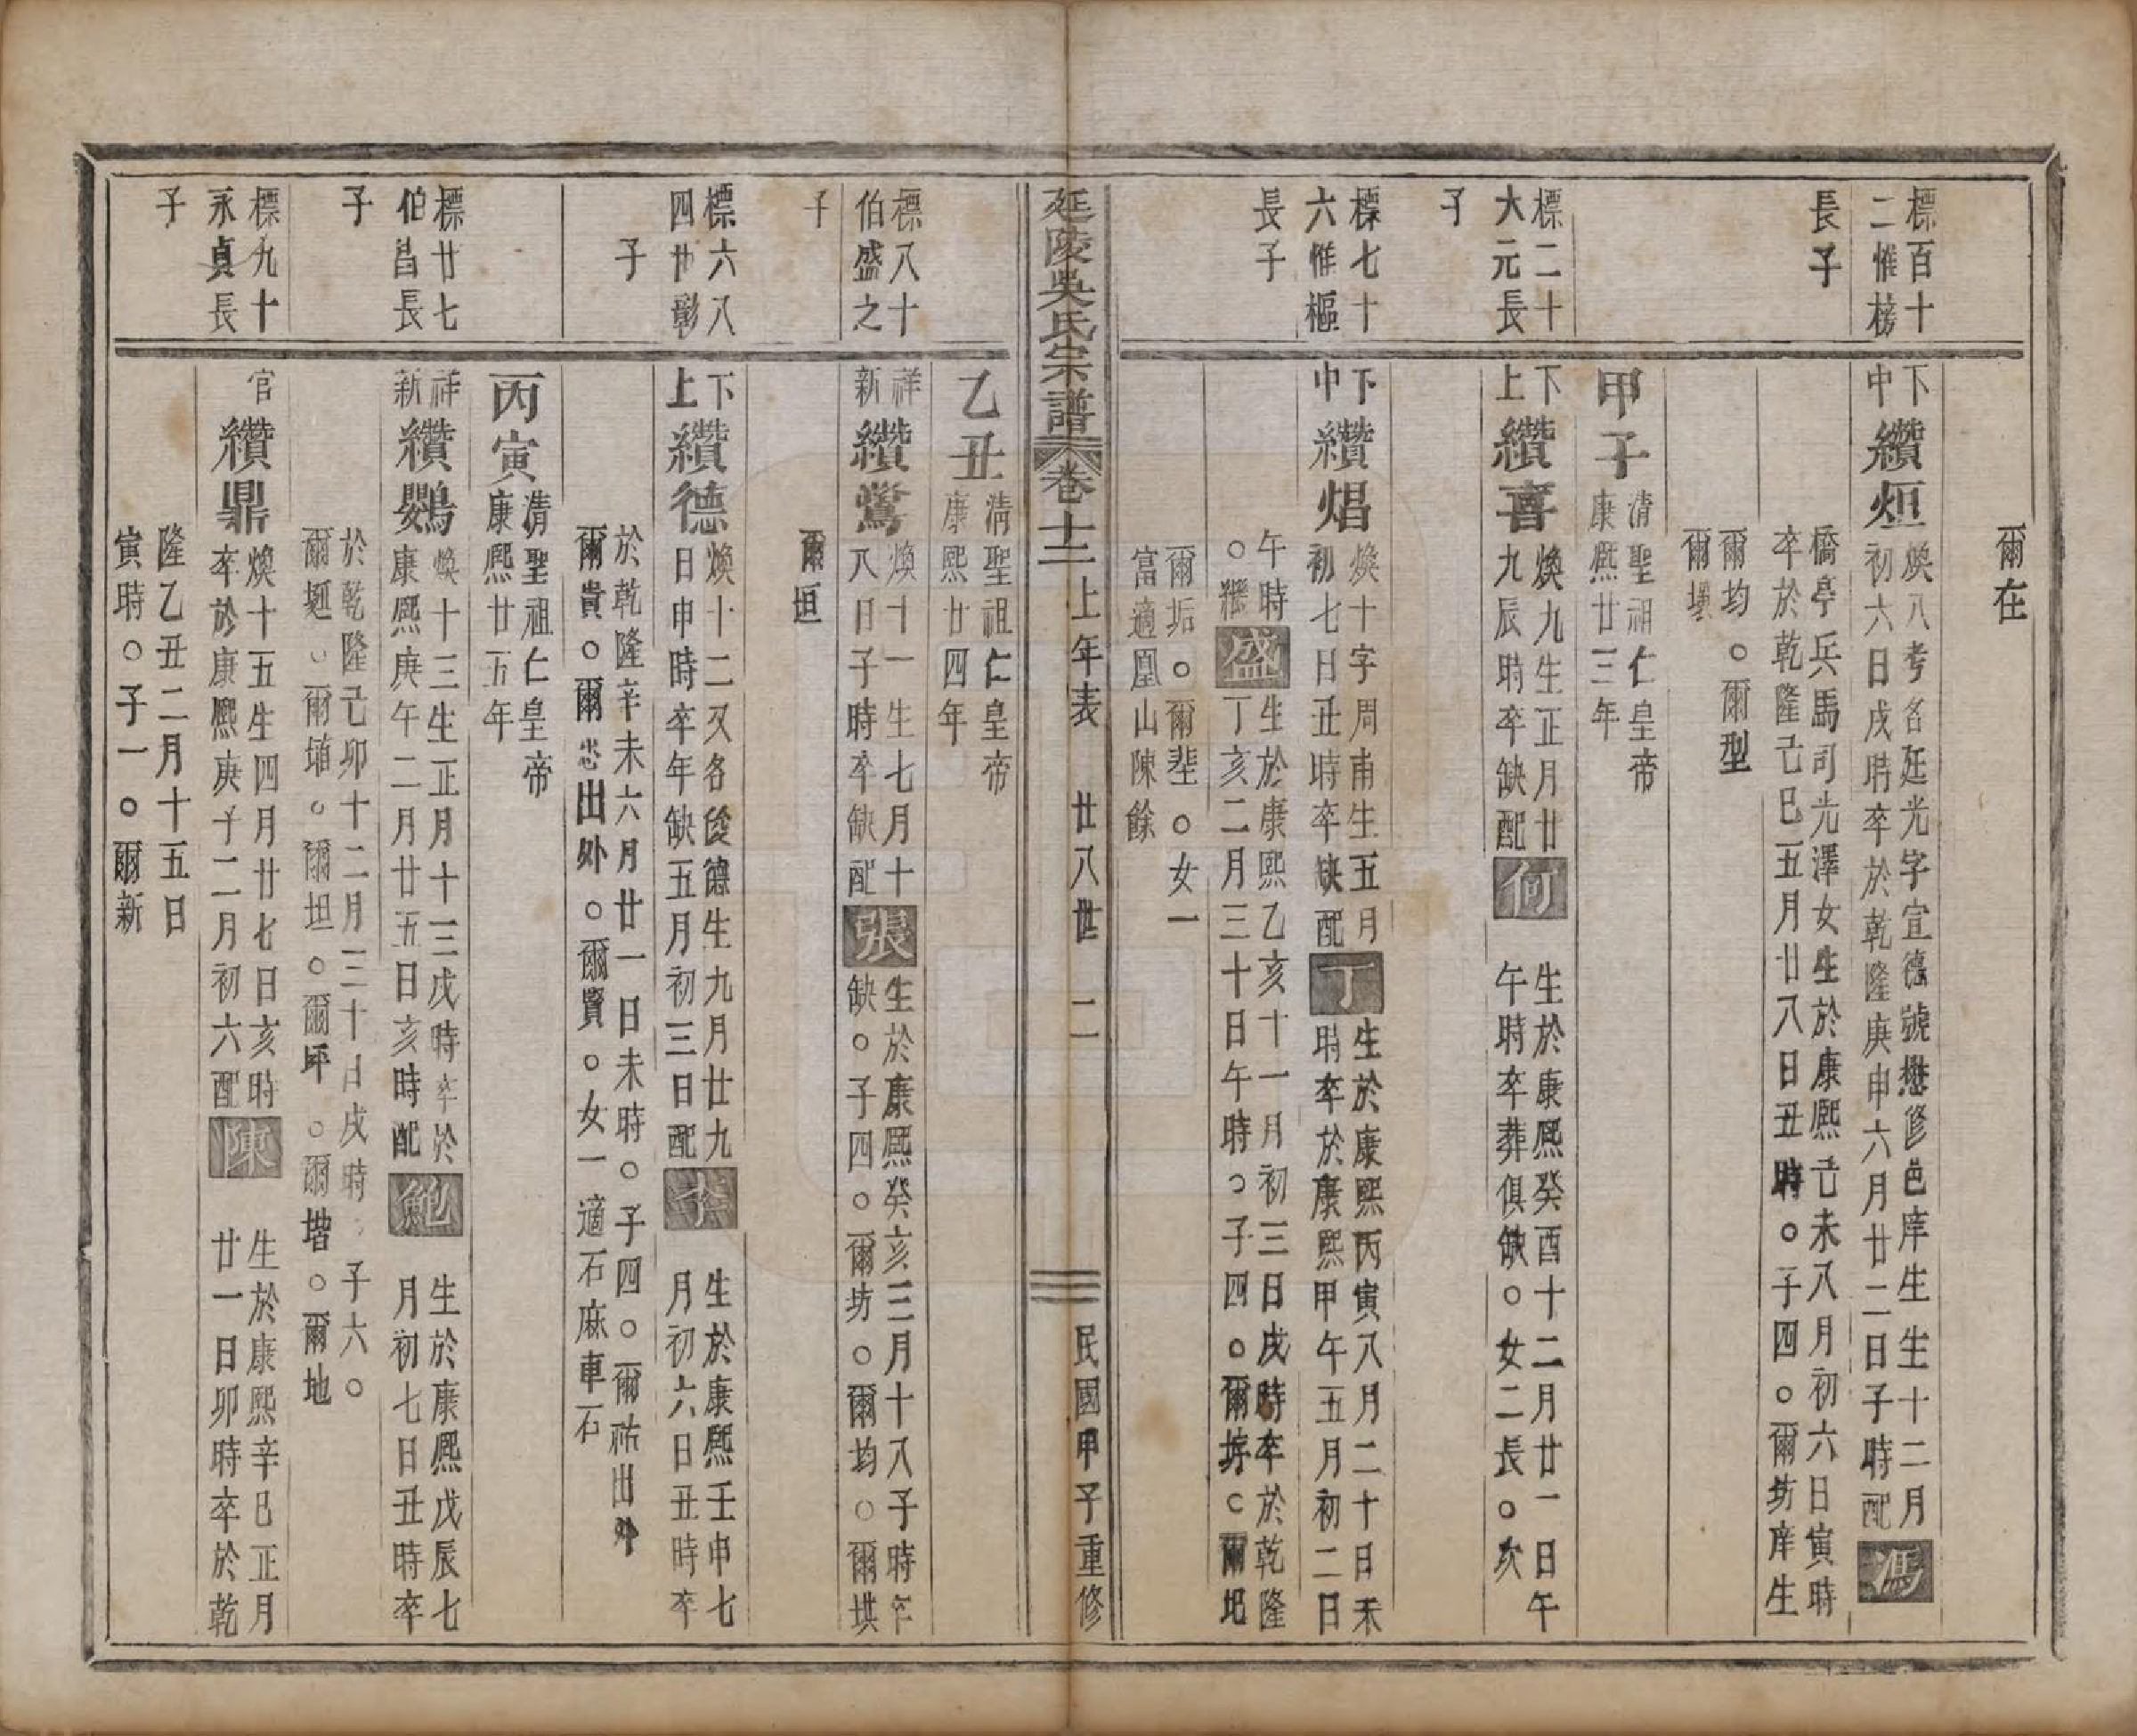 爾在
標百十
二惟榜
長子
下
中
纘烜
煥八考名廷光字宜德號懋修邑庠生生十二月
初六日戌時卒於乾隆庚申六月廿二日子時配
馮
橋亭兵馬司光澤女生於康熙己未八月初六日寅時
卒於乾隆己巳五月廿八日丑時○子四○爾坊庠生
爾均○爾型
爾壎
甲子
清聖祖仁皇帝
康熙廿三年
標二十
大元長
子
下
上
纘喜
煥九生正月廿
九辰時卒缺配
何
生於康熙癸酉十二月廿一日午
午時卒葬俱缺○女二長○次
標七十
六惟樞
長子
下
中
纘焻
煥十字周甫生五月
初七日丑時卒缺配
丁
生於康熙丙寅八月二十日未
時卒於康熙甲午五月初二日
午時
○繼
盛
生於康熙乙亥十一月初三日戌時卒於乾隆
丁亥二月三十日午時○子四○爾㘵○爾圯
爾垢○爾壁○女一
富適凰山陳餘
延陵吳氏宗譜
卷十二上年表
廿八世
二
民國甲子重修
乙丑
清聖祖仁皇帝
康熙廿四年
標八十
伯盛之
子
祥
新
纘鶯
煥十一生七月十
八日子時卒缺配
張
生於康熙癸亥三月十八子時卒
缺○子四○爾坊○爾均○爾垬
爾垣
標六八
四廿彰
子
下
上
纘德
煥十二又名俊德生九月廿九
日申時卒年缺五月初三日配
李
生於康熙壬申七
月初六日丑時卒
於乾隆辛未六月廿一日未時○子四○爾祐出外
爾貴○爾忠出外○爾賢○女一適石麻車石
丙寅
清聖祖仁皇帝
康熙廿五年
標廿七
伯昌長
子
祥
新
纘鸚
煥十三生正月十三戌時卒於
康熙庚午二月廿五日亥時配
鮑
生於康熙戊辰七
月初七日丑時卒
於乾隆己卯十二月三十日戌時○子六○
爾堩○爾埇○爾坦○爾坪○爾堦○爾地
標九十
永貞長
子
官
纘鼎
煥十五生四月廿七日亥時
卒於康熙庚子二月初六配
陳
生於康熙辛巳正月
廿一日卯時卒於乾
隆乙丑二月十五日
寅時○子一○爾新